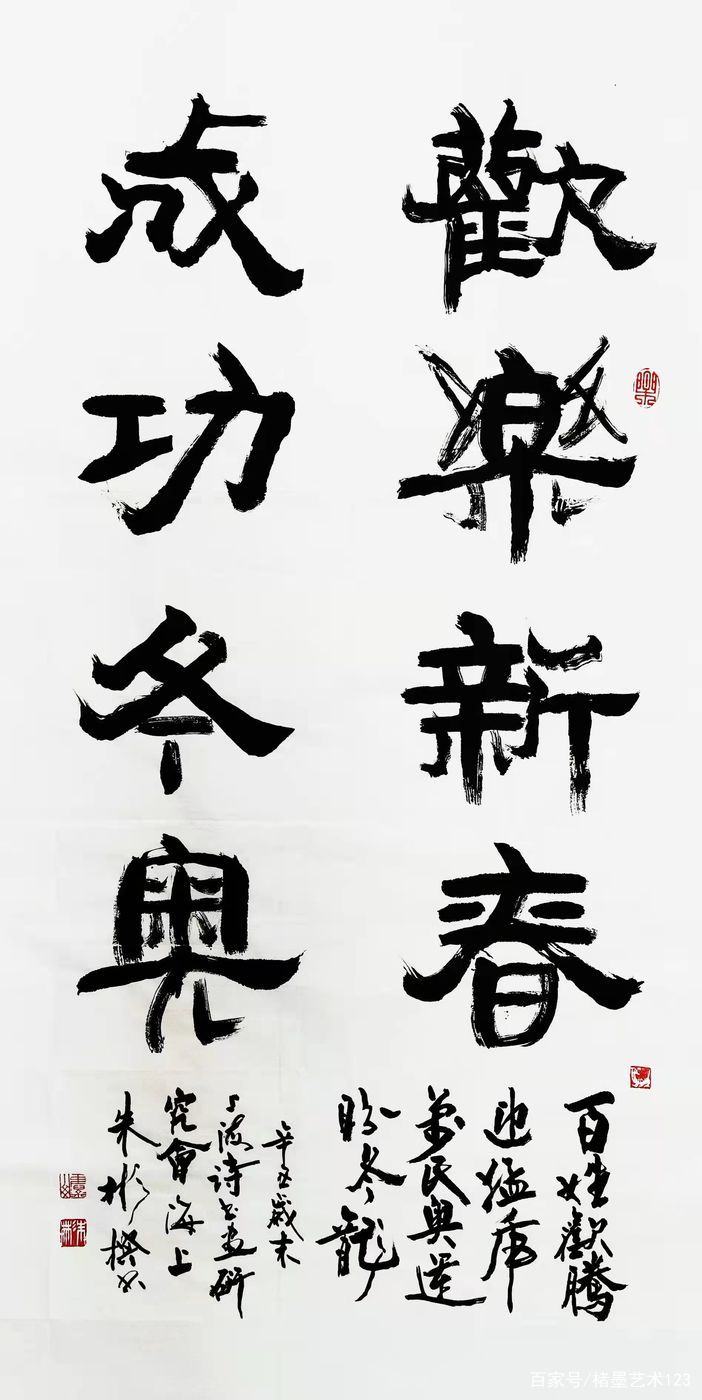 歡樂新春
成功冬奥
百姓歡騰
迎猛虎
萬民奥運
盼冬龍
辛丑歲末
上海詩书畫研
究會海上
朱彬撰书
百家号/楮墨艺术123